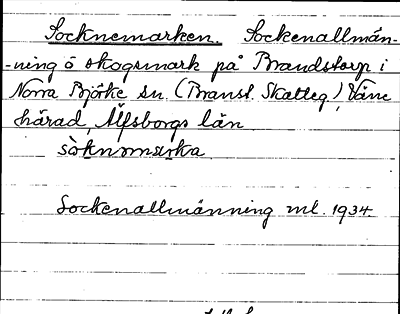 Socknemarken. Sockenallmän-
-ning o skogsmark på Brandstorp i
Norra Björke sn. (Bransl. Skatteg.) Väne
härad, Älfsborgs län
Sockenallmänning ml. 1934.